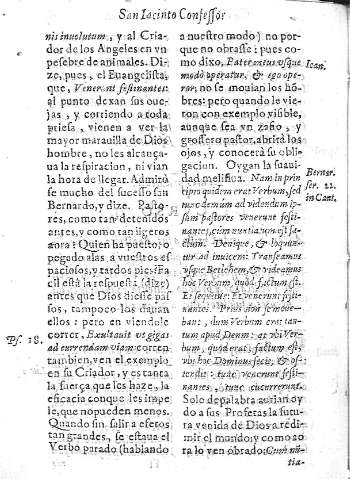 San Iacinto Confessor
nis inuolutum, y al Cria-
dor de los Angeles en vn
pesebre de animales. Di-
ze, pues, el Euangelista,
que, Venerunt festinantes:
al punto dexan sus oue-
jas, y corriendo a toda
priesa, vienen a ver la
mayor marauilla de Dios
hombre, no les alcança-
ua la respiracion, ni vian
la hora de llegar. Admirò
se mucho del sucesso san
Bernardo, y dize. Pasto-
res, como tan detenidos
antes, y como tan ligeros
aora? Quien ha puesto, o
pegado alas a vuestros es
paciosos, y tardos pies? Fa
cil està la respuesta (dize)
antes que Dios diesse pas
sos, tampoco los dauan
ellos: pero en viendole
Ps. 18.
correr, Exultauit vt gigas
ad currendam viam, corren
tambien, ven el exemplo
en su Criador, y es tanta
la fuerça que les haze, la
eficacia con que les impe-
le, que no pueden menos.
Quando sin salir a efetos
tan grandes, se estaua el
Verbo parado (hablando
a nuestro modo) no por-
que no obrasse; pues co-
Ioan.
mo dixo, Pater meus vsque
modò operatur, & ego ope-
ror, no se mouian los hõ-
bres: pero quando le vie-
ron con exemplo visible,
aunque sea vn zafio, y
grossero pastor, abrirà los
ojos, y conocerà su obli-
gacion. Oygan la suaui-
Bernar.
dad melifiua. Nam in prin-
ser. 22.
cipio quidem erat Verbum, sed
in Cant.
tunc demùm ad videndum ip-
sum pastores venerunt festi-
nantes, cùm nuntiatum est fa-
ctum. Denique, & loquun-
tur ad inuicem: Transeamus
vsque Bethlehem, & videamus
hoc Verbum, quod factum est.
Et sequitur: Et venerunt festi-
nantes. Prius non se moue-
bant, dum Verbum erat tan-
tum apud Deum: at vbi Ver-
bum, quod erat, factum est,
vbi hoc Dominus fecit, & os-
tendit: tunc venerunt festi-
nantes, tunc cucurrerunt.
Solo de palabra auian oy-
do a sus Profetas la futu-
ra venida de Dios a redi-
mir el mundo, y como ao
ra lo ven obrado, Cum nũ-
tia-